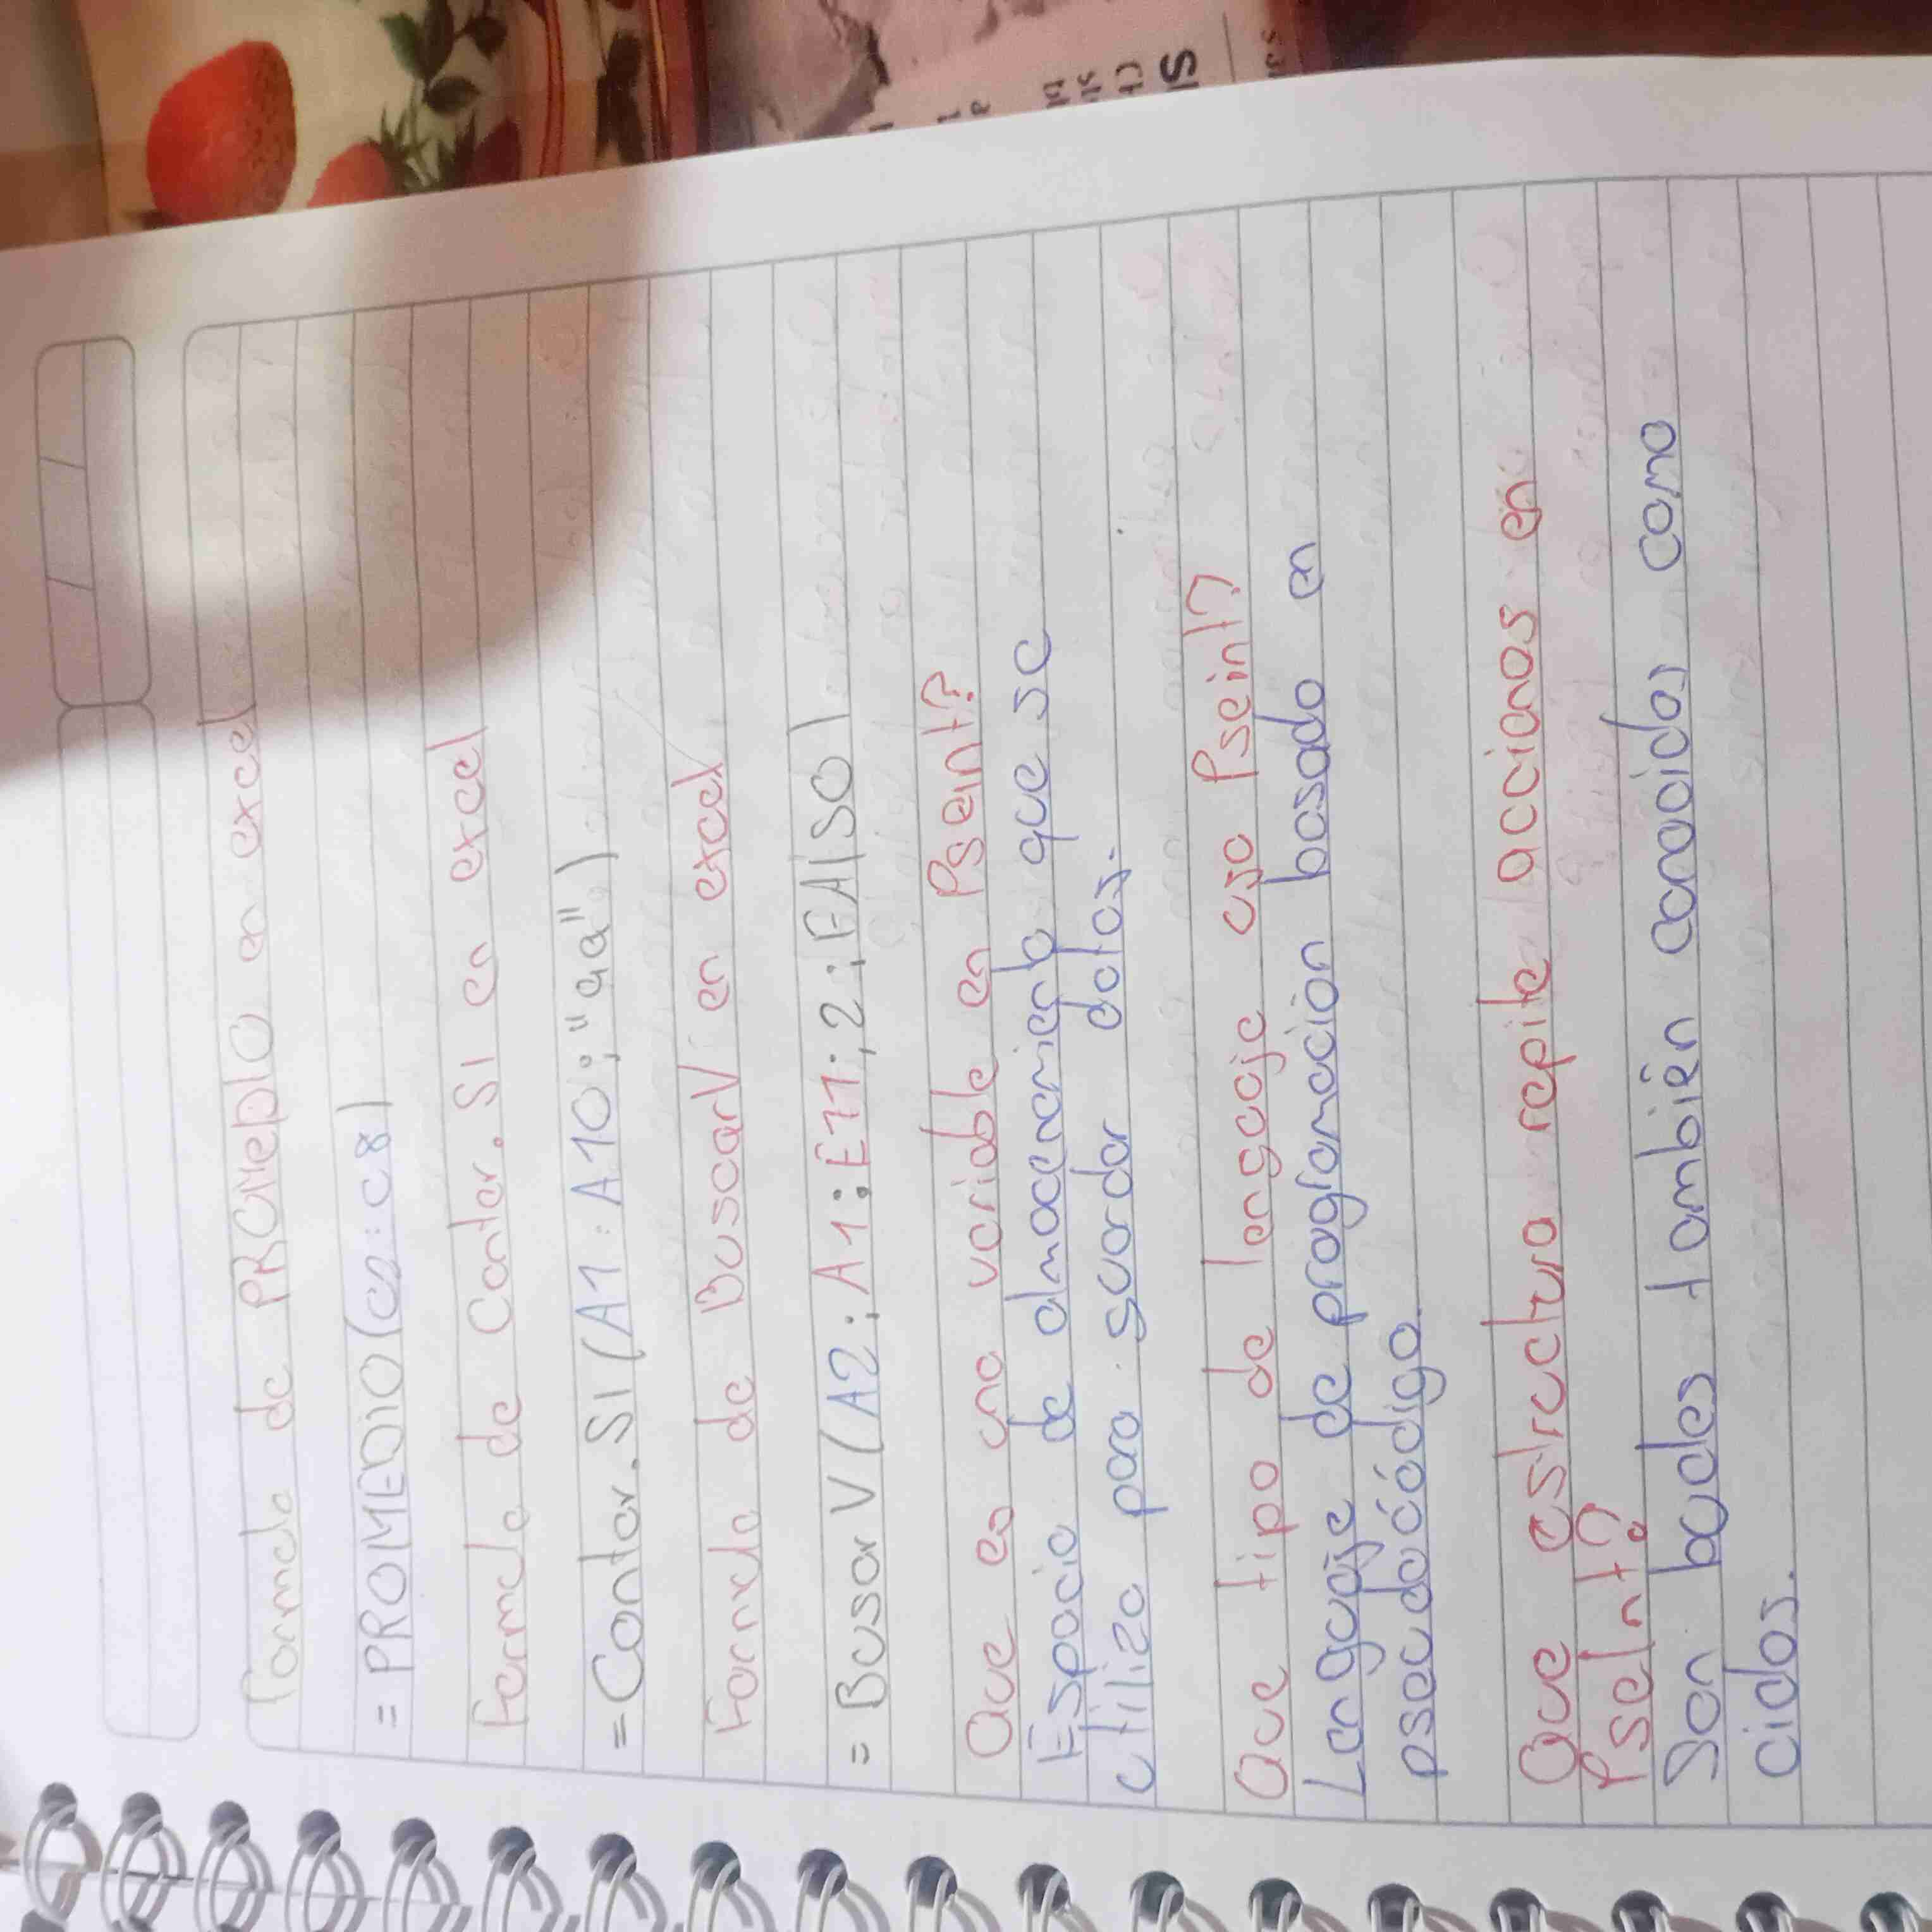 Formula de PROMEDIO en excel
= PROMEDIO(C2:C8)
Formula de Contar.SI en excel
=Contar.SI(A1:A10;"aa")
Formula de BuscarV en excel
= BusarV(A2;A1:E11;2;FAlSO)
Que es una variable en Pseint?
Espacio de almacenamiento que se
utiliza para guardar datos.
Que tipo de lenguaje usa Pseint?
Lenguaje de programación basado en
pseudocódigo.
Que estructura repite acciones en
PseInt?
Son bucles también conocidos como
ciclos.